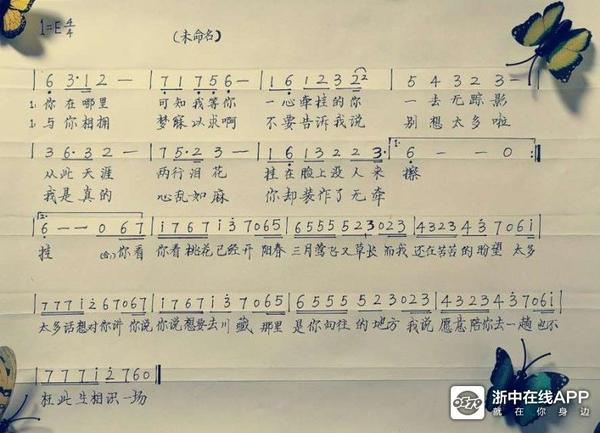 1=E 4/4
(未命名)
6 3·1 2 — | 7 1 7 5 6 — | 1 6 1 2 3 2 2 | 5 4 3 2 3 — |
1. 你在哪里 可知我等你 一心牵挂的你 一去无踪影
1. 与你相拥 梦寐以求啊 不要告诉我说 别想太多啦
3 6·3 2 — | 7 5·2 3 — | 1 6 1 2 2 2 3· | 1. 6 — — 0 :||
从此天涯 两行泪花 挂在脸上没人来 擦
我是真的 心乱如麻 你却装作了无牵
2. 6 — — 0 6 7 | i 7 6 7 i 3 7 0 6 5 | 6 5 5 5 5 2 3 0 2 3 | 4 3 2 3 4 3 7 0 6 7 |
挂 (合)你看 你看桃花已经开 阳春 三月莺飞又草长 而我 还在苦苦的盼望 太多
7 7 7 i 2 6 7 0 6 7 | i 7 6 7 i 3 7 0 6 5 | 6 5 5 5 5 2 3 0 2 3 | 4 3 2 3 4 3 7 0 6 i |
太多话想对你讲 你说 你说想要去川藏 那里 是你向往的地方 我说 愿意陪你去一趟 也不
7 7 7 i 2 7 6 0 ||
枉此生相识一场
浙中在线APP
就在你身边